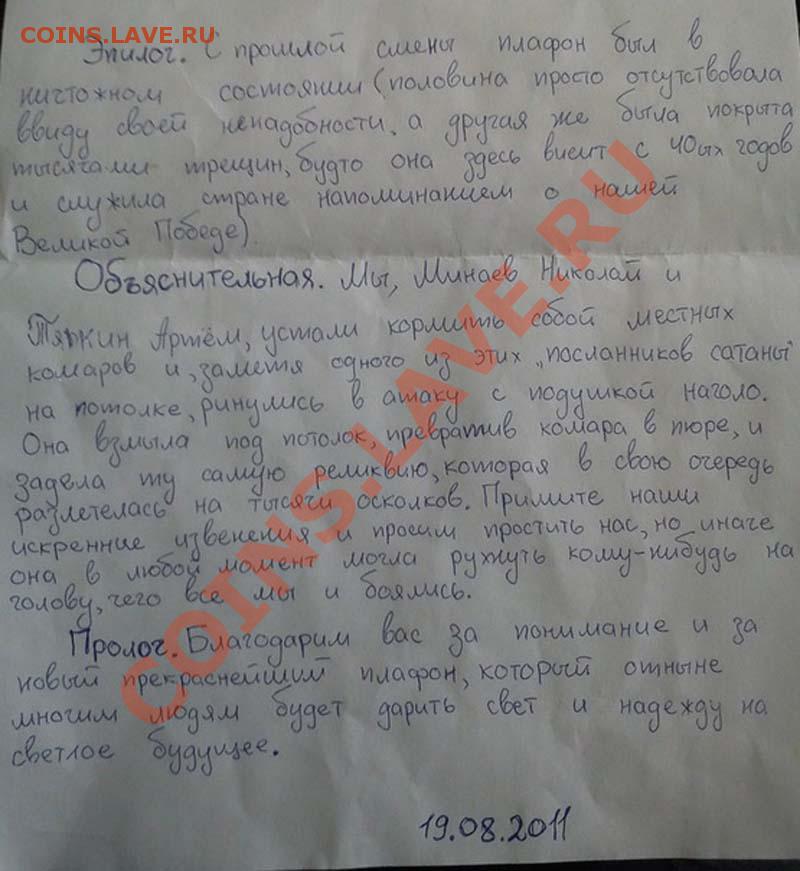 COINS.LAVE.RU
Эпилог. С прошлой смены плафон был в
ничтожном состоянии (половина просто отсутствовала
ввиду своей ненадобности, а другая же была покрыта
тысячами трещин, будто она здесь висит с 40ых годов
и служила стране напоминанием о нашей
Великой Победе).
Объяснительная. Мы, Минаев Николай и
Тяпкин Артём, устали кормить собой местных
комаров и, заметя одного из этих „посланников сатаны"
на потолке, ринулись в атаку с подушкой наголо.
Она взмыла под потолок, превратив комара в пюре, и
задела ту самую реликвию, которая в свою очередь
разлетелась на тысячи осколков. Примите наши
искренние извенения и просим простить нас, но иначе
она в любой момент могла рухнуть кому-нибудь на
голову, чего все мы и боялись.
Пролог. Благодарим вас за понимание и за
новый прекраснейший плафон, который отныне
многим людям будет дарить свет и надежду на
светлое будущее.
19.08.2011
COINS.LAVE.RU